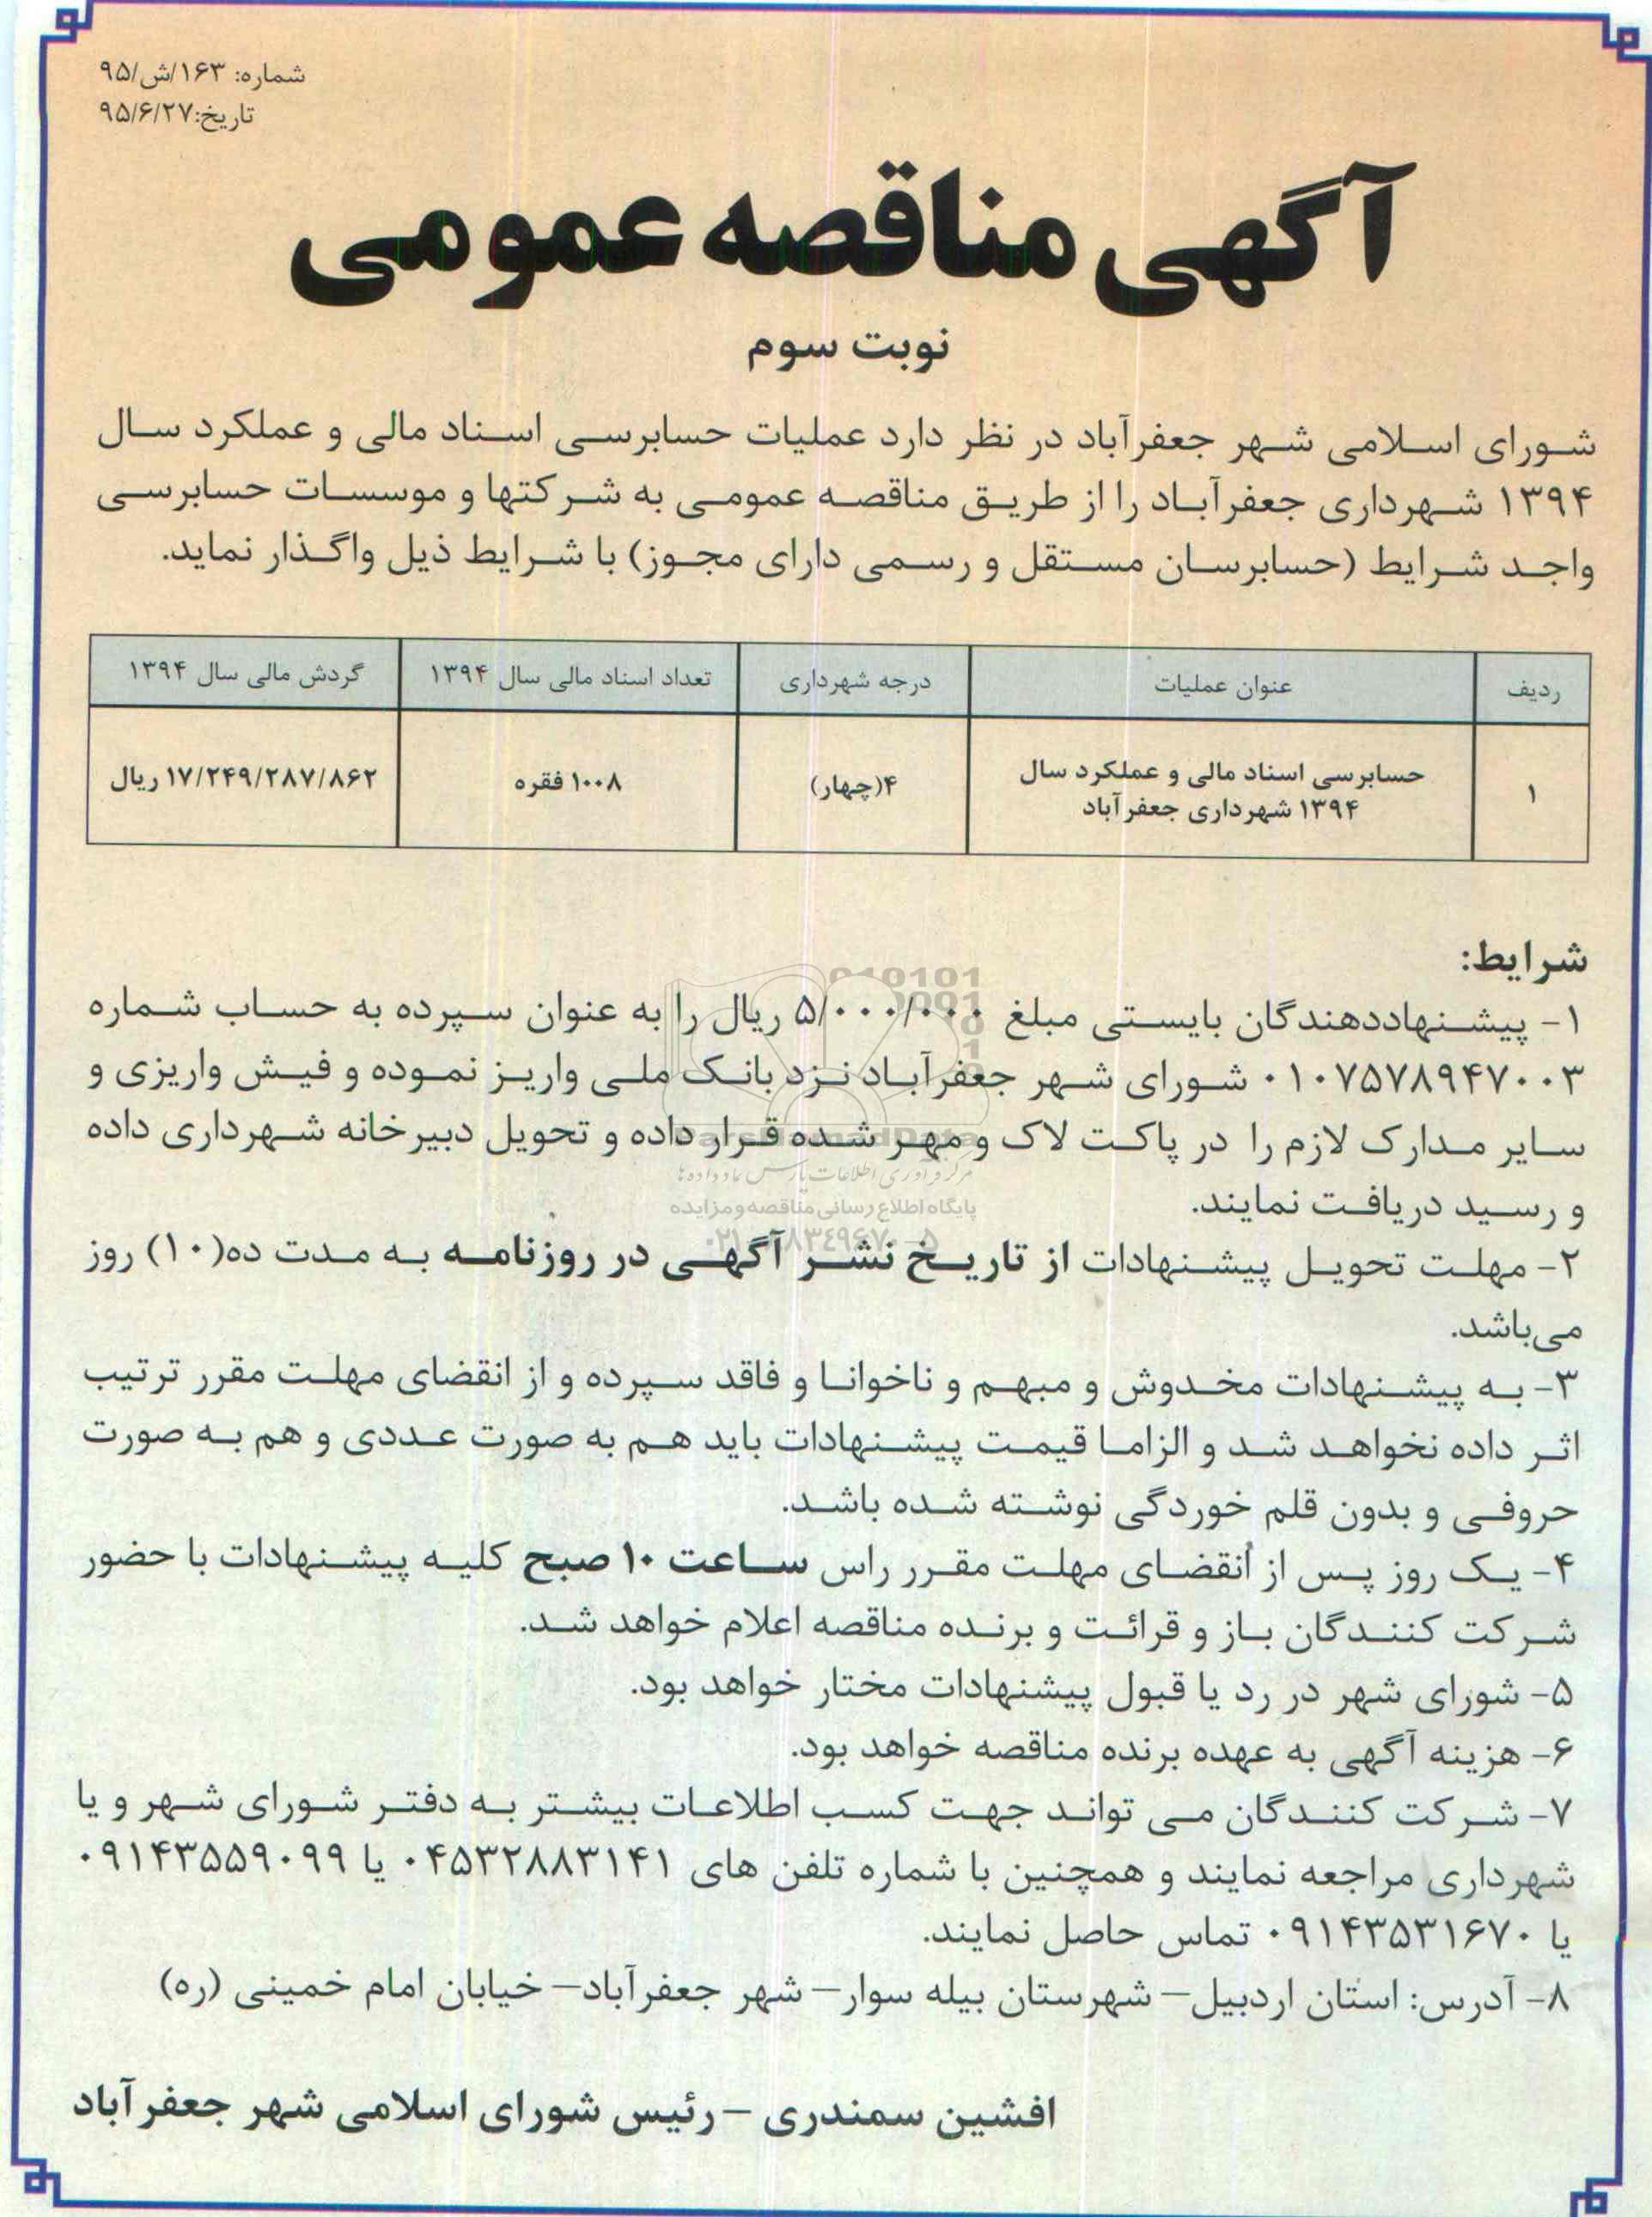 شماره: ۱۶۳/ش/۹۵
تاریخ:۹۵/۶/۲۷
آگهی مناقصه عمومی
نوبت سوم
شورای اسلامی شهر جعفرآباد در نظر دارد عملیات حسابرسی اسناد مالی و عملکرد سال
۱۳۹۴ شهرداری جعفرآباد را از طریق مناقصه عمومی به شرکتها و موسسات حسابرسی
واجد شرایط (حسابرسان مستقل و رسمی دارای مجوز) با شرایط ذیل واگذار نماید.
ردیف عنوان عملیات درجه شهرداری تعداد اسناد مالی سال ۱۳۹۴ گردش مالی سال ۱۳۹۴
۱ حسابرسی اسناد مالی و عملکرد سال ۴(چهار) ۱۰۰۸ فقره ۱۷/۲۴۹/۲۸۷/۸۶۲ ریال
۱۳۹۴ شهرداری جعفرآباد
شرایط:
۱- پیشنهاددهندگان بایستی مبلغ ۵/۰۰۰/۰۰۰ ریال را به عنوان سپرده به حساب شماره
۰۱۰۷۵۷۸۹۴۷۰۰۳ شورای شهر جعفرآباد نزد بانک ملی واریز نموده و فیش واریزی و
سایر مدارک لازم را در پاکت لاک و مهر شده قرار داده و تحویل دبیرخانه شهرداری داده
ParsNamadData
پایگاه اطلاع رسانی مناقصه و مزایده
و رسید دریافت نمایند.
۰۲۱-۸۸۳۴۹۶۷۰-۵
۲- مهلت تحویل پیشنهادات از تاریخ نشر آگهی در روزنامه به مدت ده(۱۰) روز
می‌باشد.
۳- به پیشنهادات مخدوش و مبهم و ناخوانا و فاقد سپرده و از انقضای مهلت مقرر ترتیب
اثر داده نخواهد شد و الزاما قیمت پیشنهادات باید هم به صورت عددی و هم به صورت
حروفی و بدون قلم خوردگی نوشته شده باشد.
۴- یک روز پس از انقضای مهلت مقرر راس ساعت ۱۰ صبح کلیه پیشنهادات با حضور
شرکت کنندگان باز و قرائت و برنده مناقصه اعلام خواهد شد.
۵- شورای شهر در رد یا قبول پیشنهادات مختار خواهد بود.
۶- هزینه آگهی به عهده برنده مناقصه خواهد بود.
۷- شرکت کنندگان می تواند جهت کسب اطلاعات بیشتر به دفتر شورای شهر و یا
شهرداری مراجعه نمایند و همچنین با شماره تلفن های ۰۴۵۳۲۸۸۳۱۴۱ یا ۰۹۱۴۳۵۵۹۰۹۹
یا ۰۹۱۴۳۵۳۱۶۷۰ تماس حاصل نمایند.
۸- آدرس: استان اردبیل- شهرستان بیله سوار- شهر جعفرآباد- خیابان امام خمینی (ره)
افشین سمندری - رئیس شورای اسلامی شهر جعفرآباد